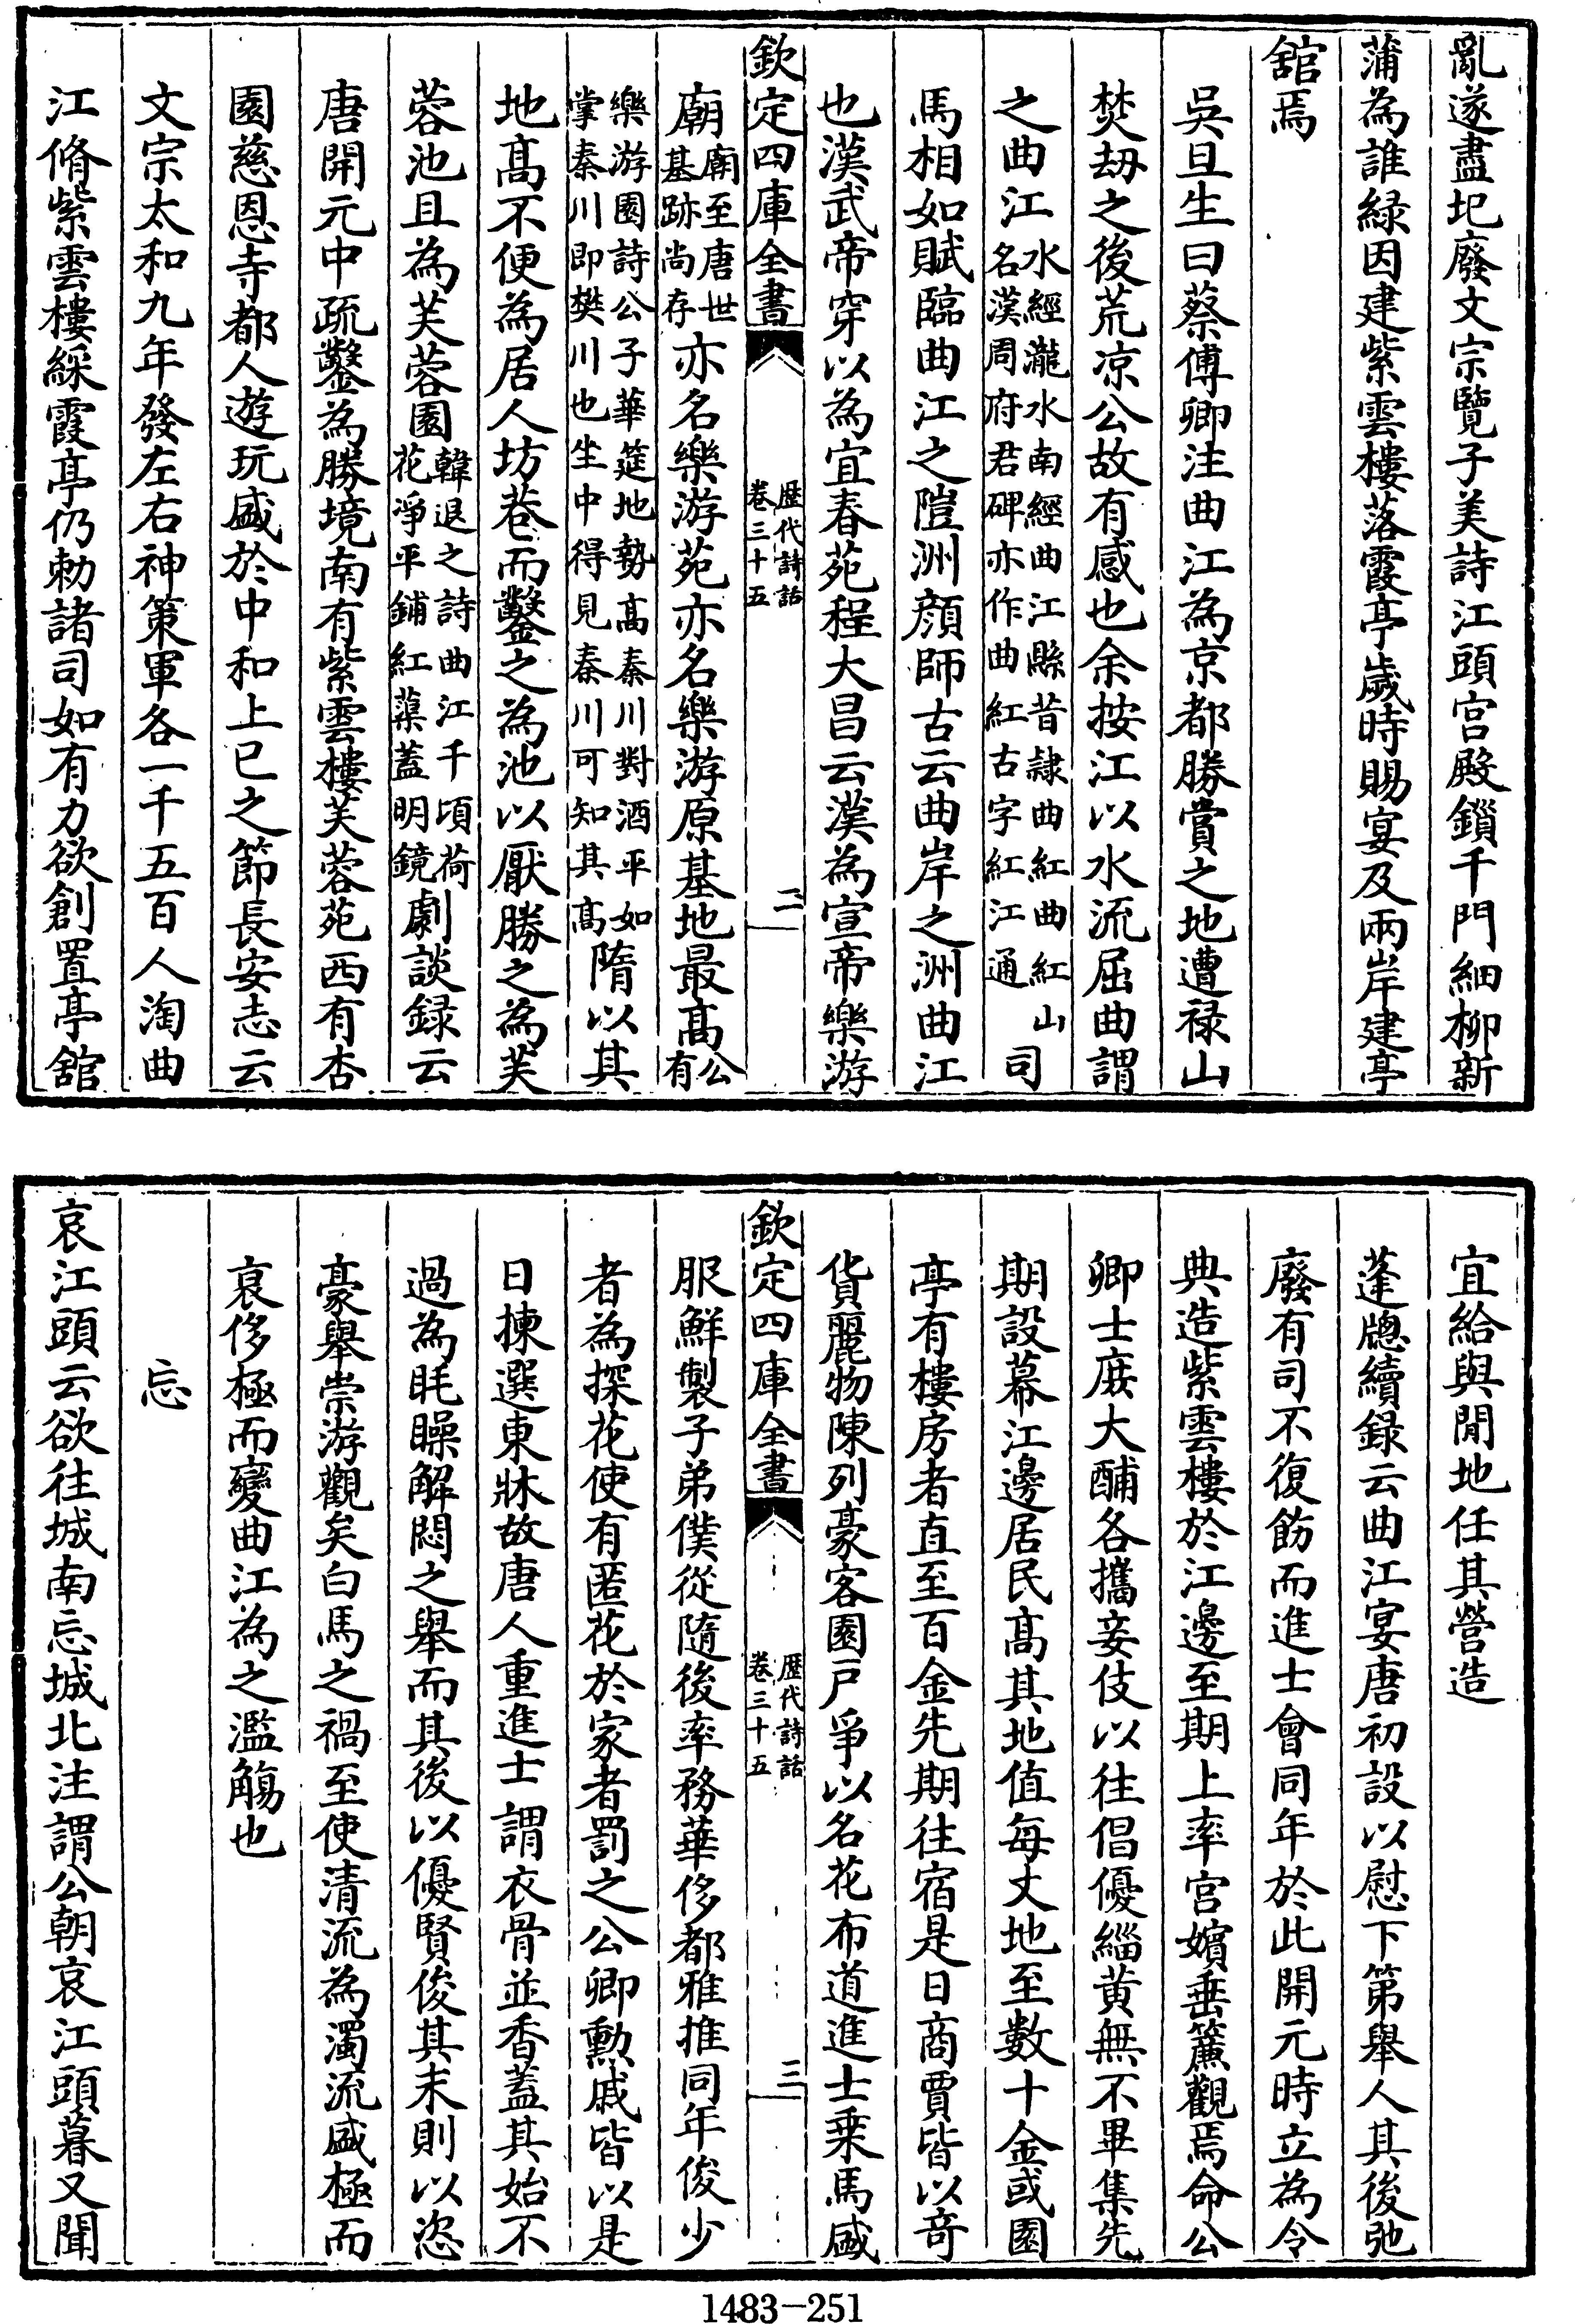 亂遂盡圯廢文宗覽子美詩江頭宫殿鎻千門細柳新
蒲為誰緑因建紫雲樓落霞亭歲時賜宴及兩岸建亭
舘焉
吳旦生曰蔡傅卿注曲江為京都勝賞之地遭禄山
焚刼之後荒凉公故有感也余按江以水流屈曲謂
之曲江水經瀧水南經曲江縣昔隷曲紅曲紅山名漢周府君碑亦作曲紅古字紅江通司
馬相如賦臨曲江之隑洲顔師古云曲岸之洲曲江
也漢武帝穿以為宜春苑程大昌云漢為宣帝樂游
欽定四庫全書 歴代詩話卷三十五 二
廟廟至唐世基跡尚存亦名樂游苑亦名樂游原基地最髙公有
樂游園詩公子華筵地勢髙秦川對酒平如掌秦川即樊川也坐中得見秦川可知其髙隋以其
地髙不便為居人坊巷而鑿之為池以厭勝之為芙
蓉池且為芙蓉園韓退之詩曲江千頃荷花淨平鋪紅蕖蓋明鏡劇談録云
唐開元中疏鑿為勝境南有紫雲樓芙蓉苑西有杏
園慈恩寺都人遊玩盛於中和上已之節長安志云
文宗太和九年發左右神策軍各一千五百人淘曲
江脩紫雲樓綵霞亭仍勅諸司如有力欲創置亭舘
宜給與閒地任其營造
蓬牕續録云曲江宴唐初設以慰下第舉人其後弛
廢有司不復飭而進士會同年於此開元時立為令
典造紫雲樓於江邊至期上率宫嬪垂簾觀焉命公
卿士庻大酺各攜妾伎以往倡優緇黄無不畢集先
期設幕江邊居民髙其地值每丈地至數十金或園
亭有樓房者直至百金先期往宿是日商賈皆以竒
貨麗物陳列豪客園戸爭以名花布道進士乗馬盛
欽定四庫全書 歴代詩話卷三十五 三
服鮮製子弟僕從隨後率務華侈都雅推同年俊少
者為探花使有匿花於家者罰之公卿勲戚皆以是
日揀選東牀故唐人重進士謂衣骨並香蓋其始不
過為眊矂解悶之舉而其後以優賢俊其末則以恣
豪舉崇游觀矣白馬之禍至使清流為濁流盛極而
衰侈極而變曲江為之濫觴也
忘
哀江頭云欲往城南忘城北注謂公朝哀江頭暮又聞
1483-251